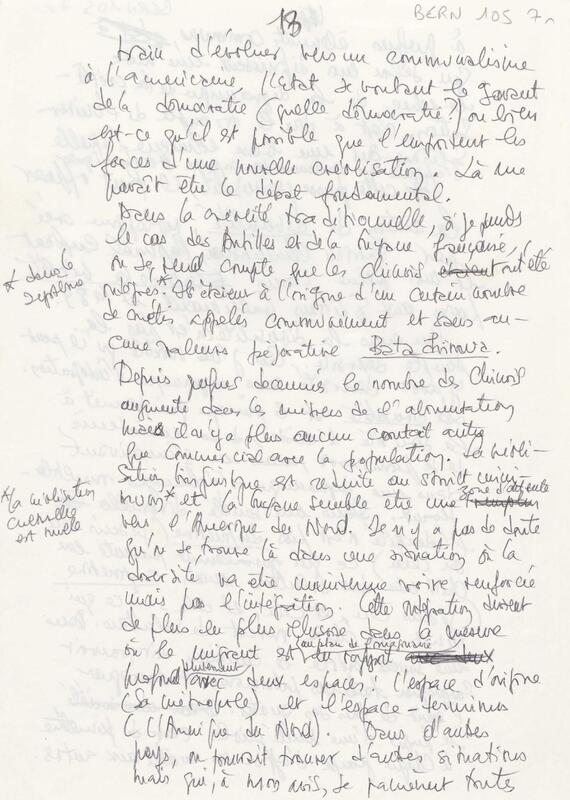 13
BERN 105 7
train d'évoluer vers un communalisme
à l'américaine l'état se voulant le garant
de la démocratie (quelle démocratie?) ou bien
est-ce qu'il est possible que l'emportent les
forces d'une nouvelle créolisation. Là me
paraît être le débat fondamental.
Dans la créolité traditionnelle, si je prends
le cas des Antilles et de la Guyane française,
on se rend compte que les Chinois étaient ont été
intégrés*. Ils étaient à l'origine d'un certain nombre
* dans le
système
de métis appelés communément et sans au-
cune valeur péjorative Bata Chinois.
Depuis quelques décennies le nombre de Chinois
augmente dans les métiers de l'alimentation
mais il n'y a plus aucun contact autre
que commercial avec la population. La créoli-
sation linguistique est réduite au strict mini-
mum* et la Guyane semble être une zone d'attente
* la créolisation
culturelle
est nulle
vers l'Amérique du Nord. Il n'y a pas de doute
qu'on se trouve là dans une situation où la
diversité va être maintenue voire renforcée
mais pas l'intégration. Cette intégration devient
de plus en plus illusoire dans la mesure
où le migrant est au plan de l'imaginaire en rapport
profond avec deux espaces: l'espace d'origine
(la métropole) et l'espace-terminus
(L'Amérique du Nord). Dans d'autres
pays, on pourrait trouver d'autres situations
mais qui, à mon avis, se ramènent toutes